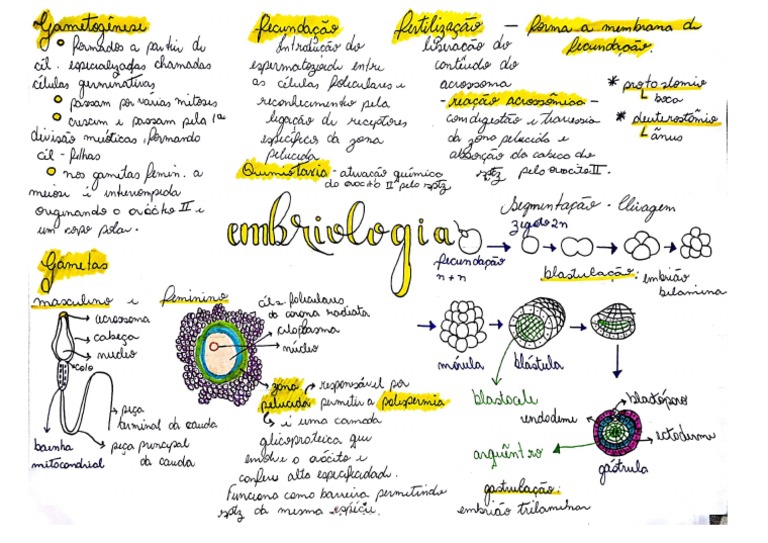 Gametogênese
formados a partir de
cél. especializadas chamadas
células germinativas
passam por varias mitoses
crescem e passam pela 1ª
divisão meióticas, formando
cél-filhas
nos gametas femin. a
meiose é interrompida
originando o ovócito II e
um corpo polar.
Gametas
masculino e feminino
acrossoma
cabeça
núcleo
colo
peça
terminal da cauda
peça principal
da cauda
bainha
mitocondrial
céls foliculares
da corona radiata
citoplasma
núcleo
zona
pelucida
responsável por
permitir a polispermia
é uma camada
glicoproteica que
envolve o ovócito e
confere alta especificidade.
Funciona como barreira permitindo
sptz da mesma espécie.
fecundação
Introdução do
espermatozoide entre
as células foliculares e
reconhecimento pela
ligação de receptores
específicos da zona
pelucida
Quimiotaxia - atuação químico
do ovócito II pelo sptz
embriologia
fertilização - forma a membrana de
fecundação.
liberação do
conteúdo do
acrossoma
- reação acrossômica -
com digestão e travessia
da zona pelucida e
absorção da cabeça do
sptz pelo ovócito II.
* protostômio
boca
* deuterostômio
ânus
Segmentação - Clivagem
zigoto 2n
fecundação
n + n
blastulação: embrião
bilamina
mórula
blástula
blastocele
blastóporo
endoderme
ectoderme
arquêntro
gástrula
gastrulação:
embrião trilaminar